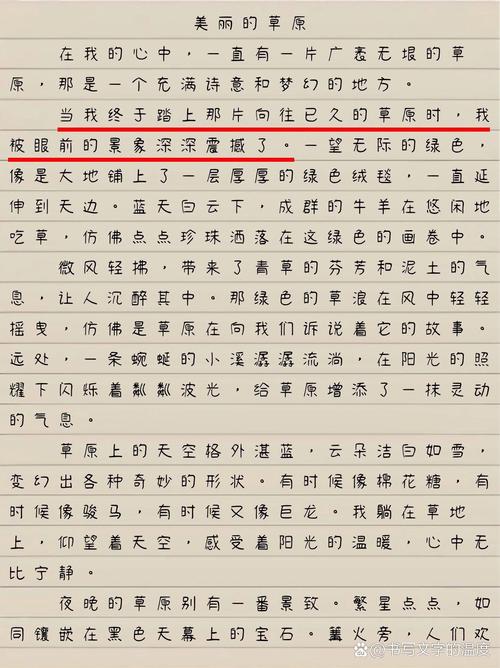 美丽的草原
在我的心中，一直有一片广袤无垠的草
原，那是一个充满诗意和梦幻的地方。
当我终于踏上那片向往已久的草原时，我
被眼前的景象深深震撼了。一望无际的绿色，
像是大地铺上了一层厚厚的绿色绒毯，一直延
伸到天边。蓝天白云下，成群的牛羊在悠闲地
吃草，仿佛点点珍珠洒落在这绿色的画卷中。
微风轻拂，带来了青草的芬芳和泥土的气
息，让人沉醉其中。那绿色的草浪在风中轻轻
摇曳，仿佛是草原在向我们诉说着它的故事。
远处，一条蜿蜒的小溪潺潺流淌，在阳光的照
耀下闪烁着粼粼波光，给草原增添了一抹灵动
的气息。
草原上的天空格外湛蓝，云朵洁白如雪，
变幻出各种奇妙的形状。有时候像棉花糖，有
时候像骏马，有时候又像巨龙。我躺在草地
上，仰望着天空，感受着阳光的温暖，心中无
比宁静。
夜晚的草原别有一番景致。繁星点点，如
同镶嵌在黑色天幕上的宝石。篝火旁，人们欢
书写文字的温度